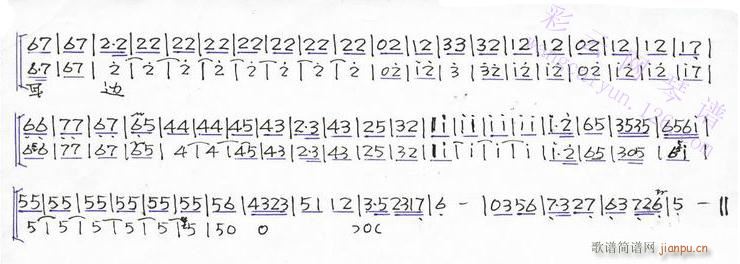 67|67|2·2|22|22|22|22|22|22|22|22|02|12|33|32|12|12|02|12|12|17|
6·7|67|2|2|2|2|2|2|2|2|2|02|12|3|32|12|12|02|12|12|17|
耳 边
66|77|67|65|44|44|45|43|2·3|43|25|32|‖i|ii|ii|ii|i·2|65|3535|656i|
666|77|67|65|4|4|45|43|2·3|43|25|32|‖i|i|i|i|i·2|65|305|6i|
55|55|55|55|55|55|56|4323|51|12|3·52317|6 - |0356|7·327|63726|5 - ‖
5|5|5|5|5|5|50 0
歌谱简谱网 jianpu.cn